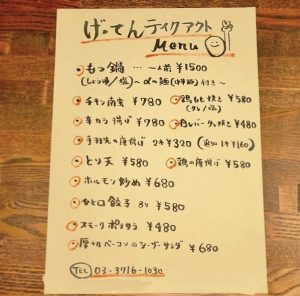 げってん テイクアウト
Menu
もつ鍋 … 一人前 ¥1500
(しょうゆ/塩)～ 〆の麺(中華麺)付き～
チキン南蛮 ¥780
鶏もも焼き ¥580
(タレ/塩)
辛カラ揚げ ¥780
白レバータレ焼き ¥480
手羽先の唐揚げ 2本 ¥320 (追加1本 ¥160)
とり天 ¥580
鶏の唐揚げ ¥580
ホルモン炒め ¥680
ひと口餃子 8ヶ ¥580
スモークポテサラ ¥480
厚切ベーコンのシーザーサラダ ¥680
TEL 03-3716-1030